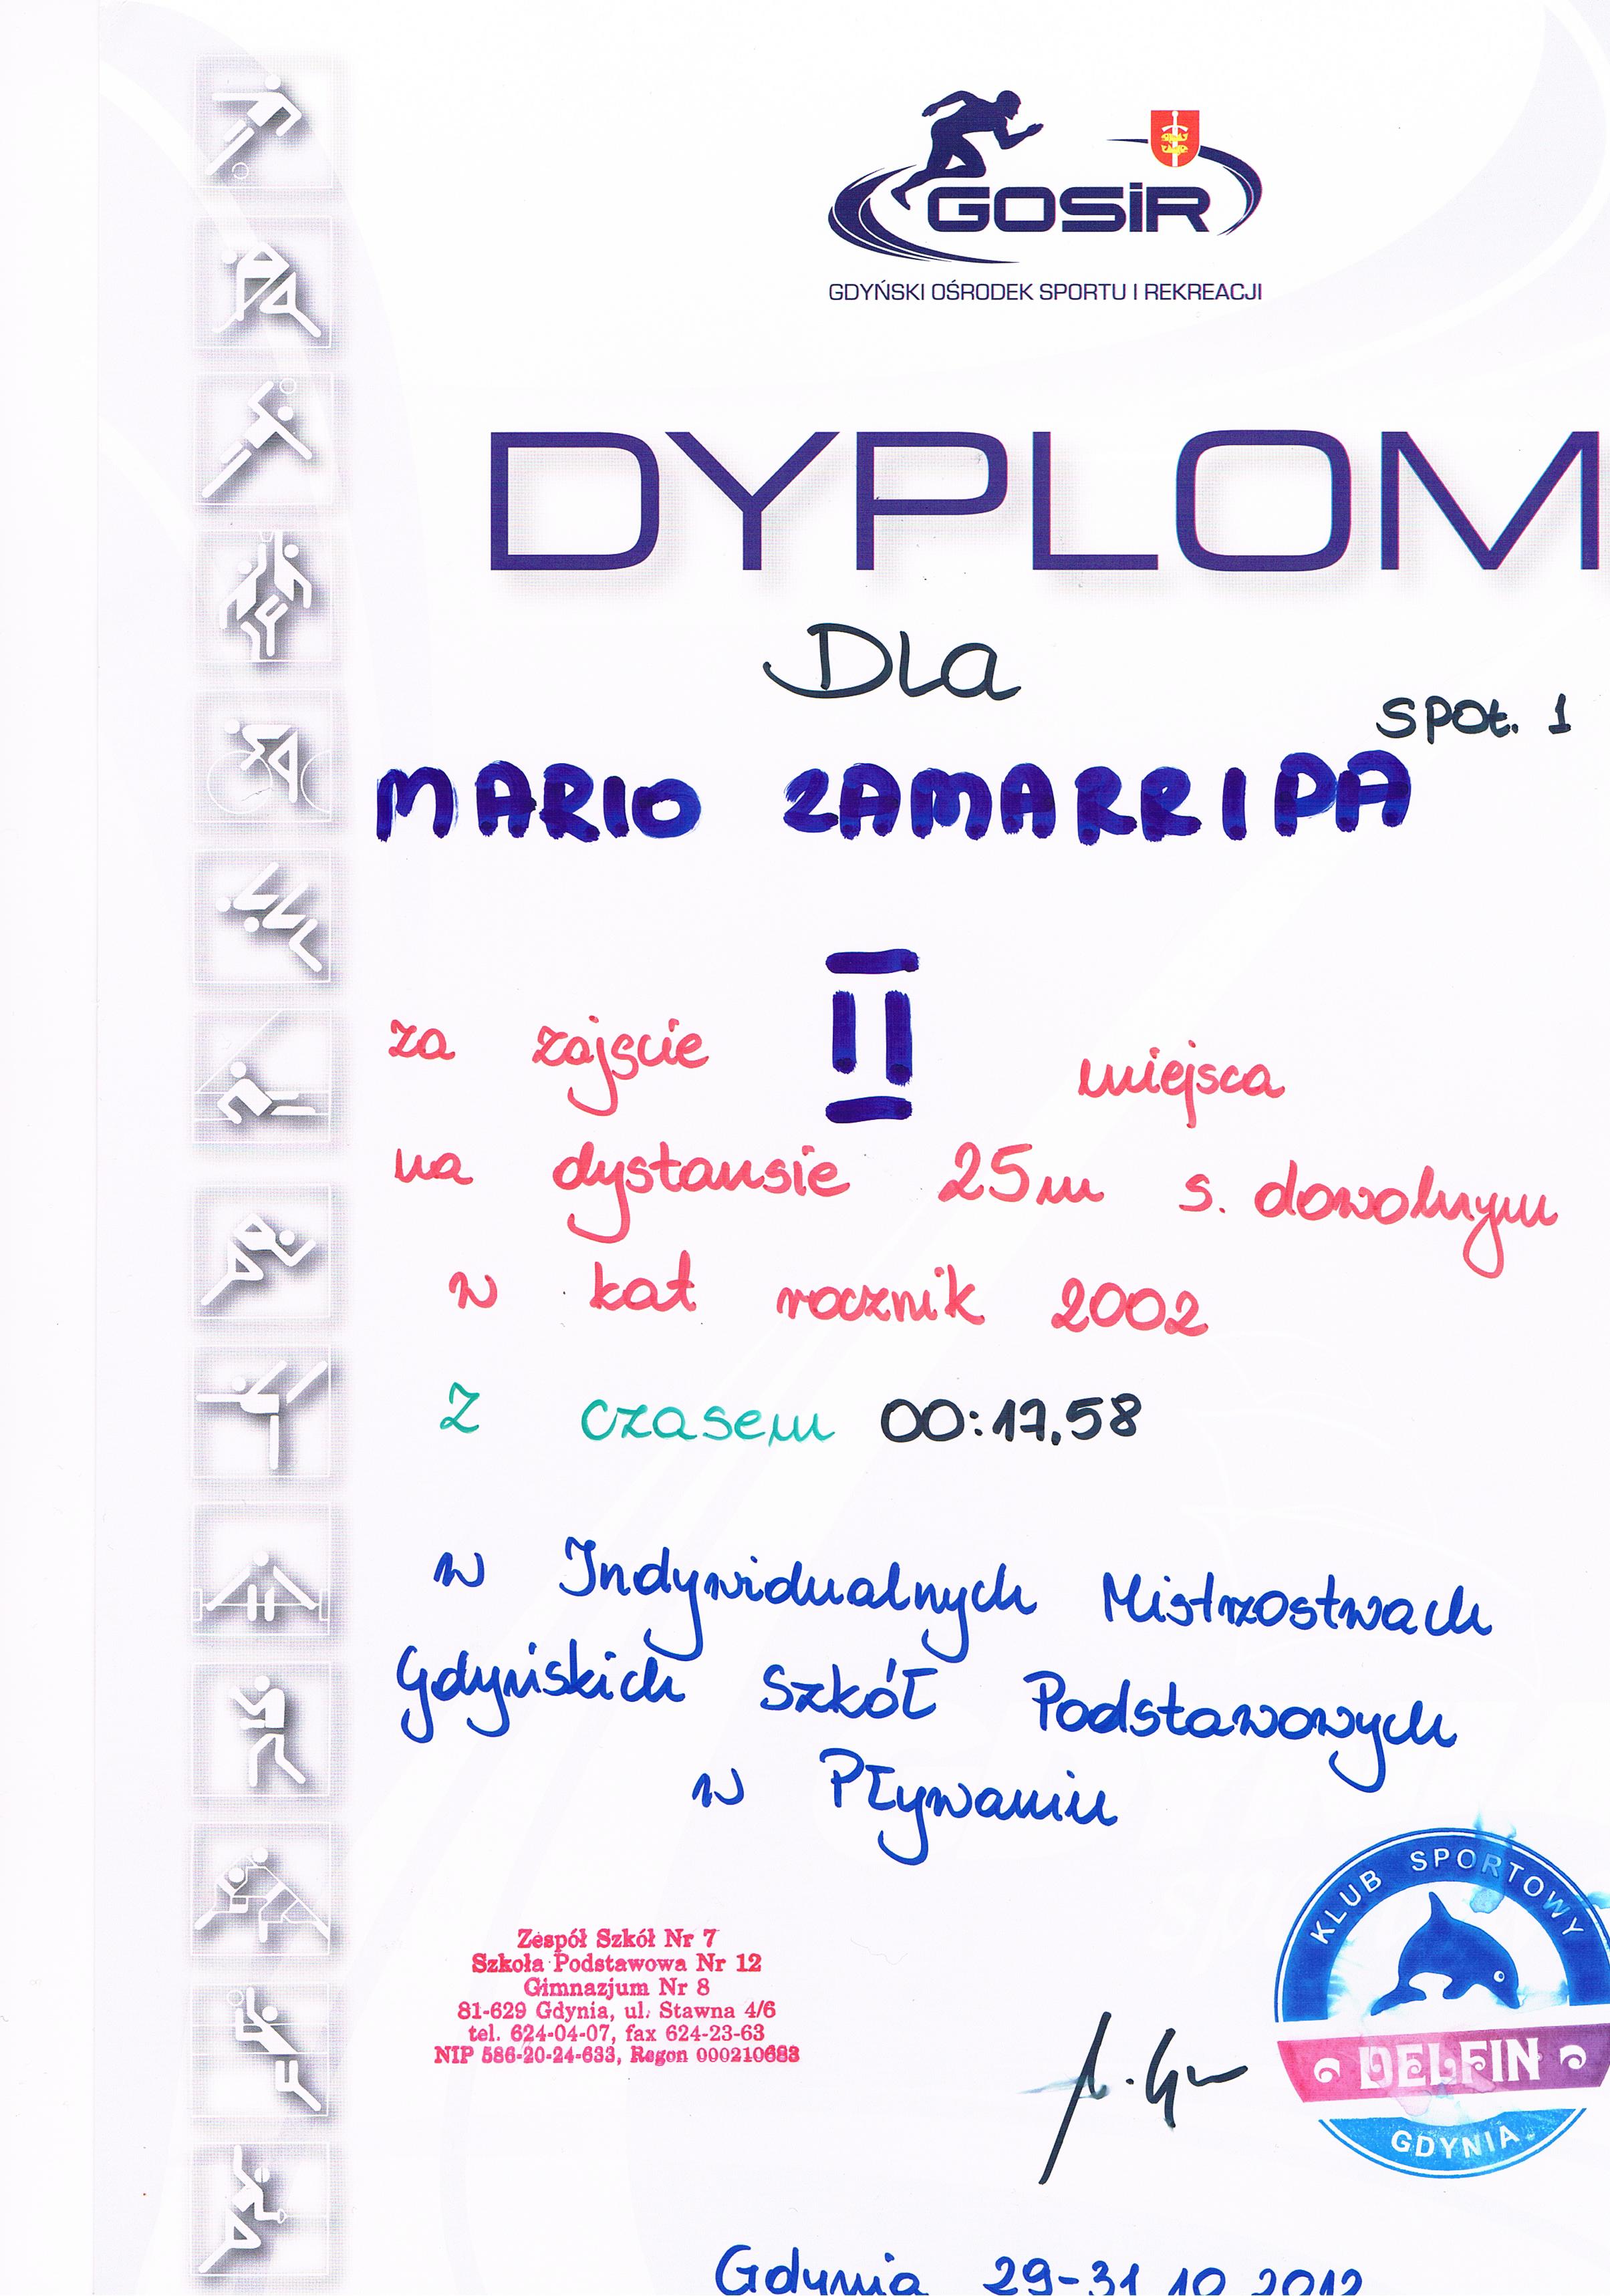 GOSiR
GDYŃSKI OŚRODEK SPORTU I REKREACJI
DYPLOM
Dla
SPOŁ. 1
MARIO ZAMARRIPA
za zajście II miejsca
na dystansie 25m s. dowolnym
w kat rocznik 2002
Z czasem 00:17.58
w Indywidualnych Mistrzostwach
Gdyńskich Szkół Podstawowych
w Pływaniu
Zespół Szkół Nr 7
Szkoła Podstawowa Nr 12
Gimnazjum Nr 8
81-629 Gdynia, ul. Stawna 4/6
tel. 624-04-07, fax 624-23-63
NIP 586-20-24-633, Regon 000210683
KLUB SPORTOWY
DELFIN
GDYNIA
Gdynia 29-31.10.2012